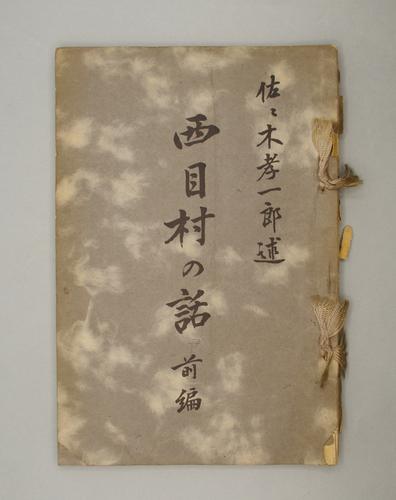 佐々木孝一郎述
西目村の話 前編